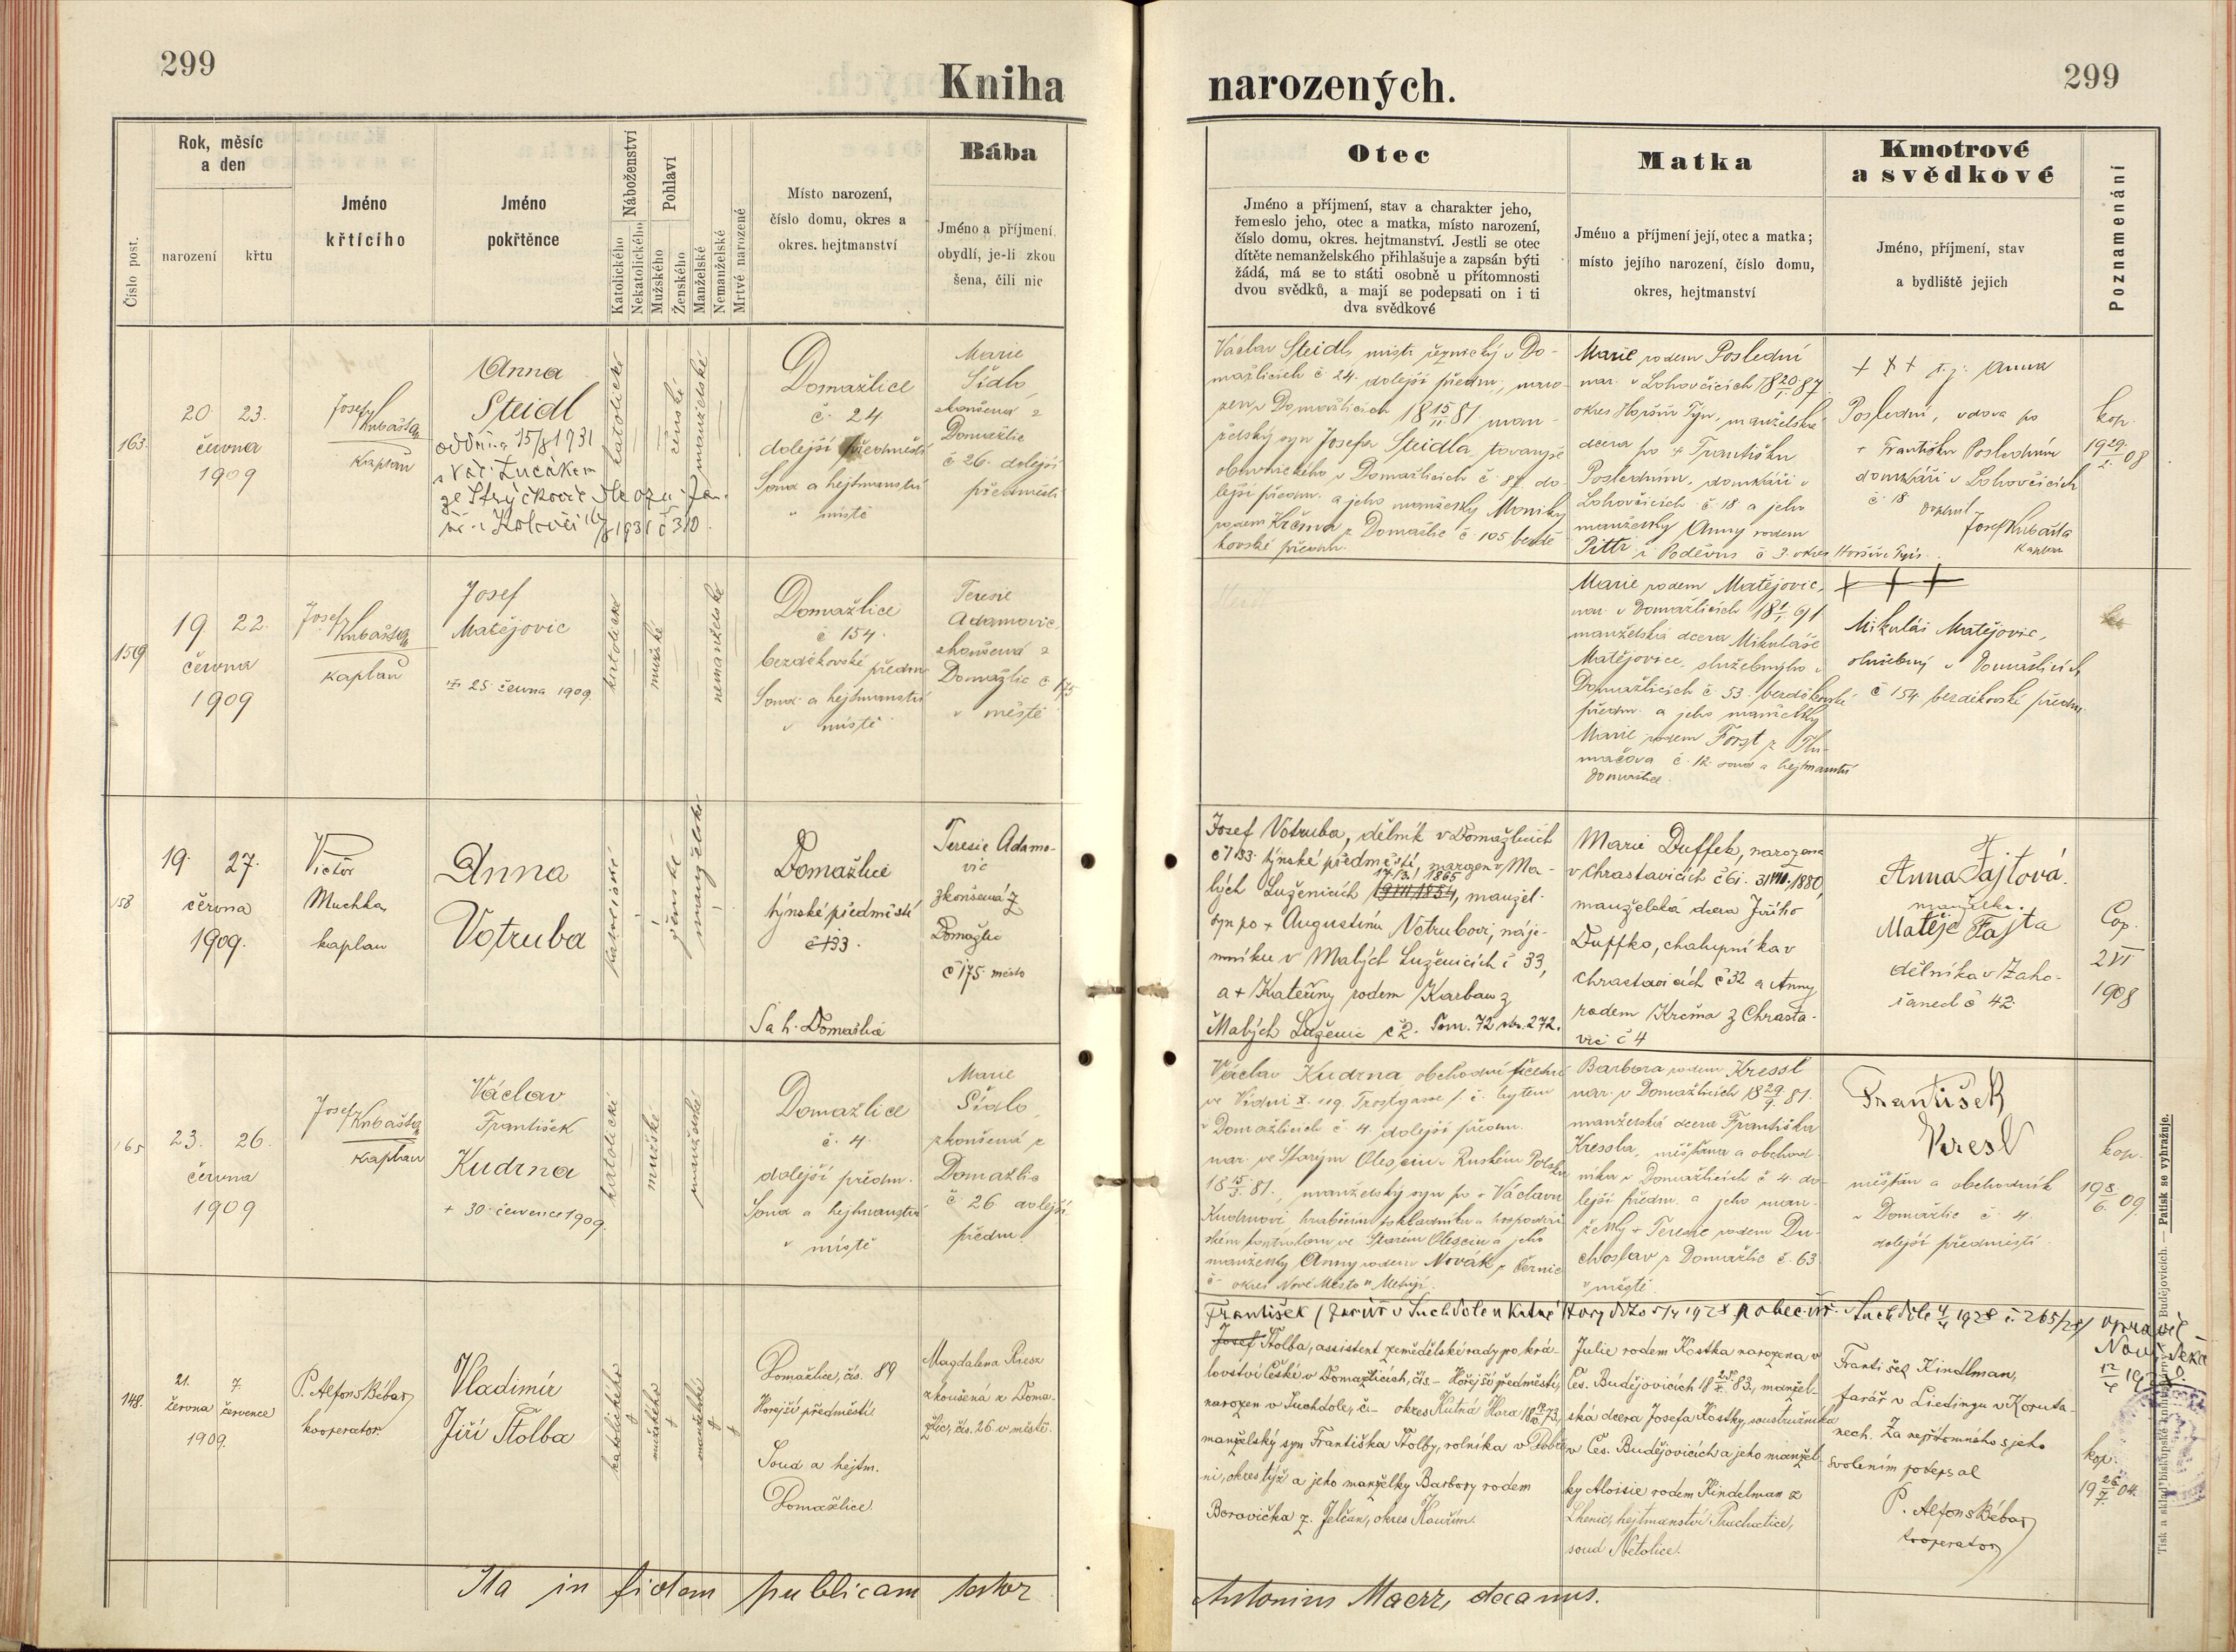 299
Kniha
narozených.
299
Číslo post.
Rok, měsíc
a den
narození
křtu
Jméno
křtícího
Jméno
pokřtěnce
Náboženství
Katolického
Nekatolického
Pohlaví
Mužského
Ženského
Manželské
Nemanželské
Mrtvě narozené
Místo narození,
číslo domu, okres a
okres. hejtmanství
Bába
Jméno a příjmení
obydlí, je-li zkou
šena, čili nic
Otec
Jméno a příjmení, stav a charakter jeho,
řemeslo jeho, otec a matka, místo narození,
číslo domu, okres. hejtmanství. Jestli se otec
dítěte nemanželského přihlašuje a zapsán býti
žádá, má se to státi osobně u přítomnosti
dvou svědků, a mají se podepsati on i ti
dva svědkové
Matka
Jméno a příjmení její, otec a matka;
místo jejího narození, číslo domu,
okres, hejtmanství
Kmotrové
a svědkové
Jméno, příjmení, stav
a bydliště jejich
Poznamenání
163.
20. 23.
června
1909
Josef Kubašta
kaplan
Anna
Steidl
oddána 15/8 1931
katolické
ženské
manželské
Domažlice
č. 24
dolejší předměstí
Soud a hejtmanství
v místě
Marie
Sídlo
zkoušená z
Domažlic
č 26. dolejší
předměstí
Václav Steidl, mistr řeznický v Do-
mažlicích č. 24. dolejší předm., naro-
zen v Domažlicích 18 15/II 81. man-
želský syn Josefa Steidla
obuvnického v Domažlicích č. 87. do-
lejší předm. a jeho manželky Moniky
rodem Krčma z Domažlic č. 105 bezdě-
kovské předm.
Marie rodem Poslední
nar. v Lohovčicích 18 20/I 87.
okres Horšův Týn, manželská
dcera po + Františku
Posledním, domkáři v
Lohovčicích č. 18 a jeho
manželky Anny rodem
Pittr z Poděvus č 3. okres Horšův Týn.
+ + + t.j. Anna
Poslední, vdova po
+ Františku Posledním
domkáři v Lohovčicích
č 18
Josef Kubašta
kaplan
kop.
1909
19 22.
června
1909
Josef Kubašta
kaplan
Josef
Matějovic
+ 25. června 1909.
katolické
mužské
nemanželské
Domažlice
č 154.
bezděkovské předm
Soud a hejtmanství
v místě
Teresie
Adamovic,
zkoušená z
Domažlic č 175
v městě
Marie rodem Matějovic,
nar. v Domažlicích
manželská dcera Mikuláše
Matějovice, služebného v
Domažlicích č. 53. bezděkovské
předm. a jeho manželky
Marie rodem Forst z Tlu-
mačova č. 12. soud a hejtmanství
Domažlice.
+ + +
Mikuláš Matějovic,
služebný v Domažlicích
č 154 bezděkovské předm.
158
19. 27.
června
1909.
Victor
Muchka,
kaplan
Anna
Votruba
katolické
ženské
manželské
Domažlice
týnské předměstí
č 133.
S a h. Domažlice
Teresie Adamo-
vic
zkoušená z
Domažlic
č 175 město
Josef Votruba, dělník v Domažlicích
č 133. týnské předměstí, narozen v Ma-
17./3. 1865
lých Luženicích manžel.
syn po + Augustinu Votrubovi, náje-
mníku v Malých Luženicích č 33,
a + Kateřiny rodem Karban z
Malých Luženic č 2. Tom. 72 str. 272.
Marie Duffek, narozena
v Chrastavicích č 61. 31/VIII. 1880,
manželská dcera Jiřího
Duffka, chalupníka v
Chrastavicích č 32 a Anny
rodem Krčma z Chrasta-
vic č 4
Anna Fajtová.
manželka.
Matěje Fajta
dělníka v Zaho-
řanech č 42.
Cop.
2 VI
1908
165
23. 26.
června
1909
Josef Kubašta
kaplan
Václav
František
Kudrna
+ 30. července 1909.
katolické
mužské
manželské
Domažlice
č. 4.
dolejší předm.
Soud a hejtmanství
v místě
Marie
Sídlo,
zkoušená z
Domažlic
č. 26 dolejší
předm.
Václav Kudrna, obchodní
ve Vídni X. Trostgasse
v Domažlicích č. 4. dolejší předm.
nar. ve Starým Olesciu v Ruském Polsku
18 15/3. 81., manželský syn po + Václavu
Kudrnovi
manželky Anny rodem Novák z Černic
č - okres Nové Město n. Metují.
Barbora rodem Kressl
nar. v Domažlicích 18 29/9. 81.
manželská dcera Františka
Kressla, měšťana a obchod-
níka v Domažlicích č 4 do-
lejší předm. a jeho man-
želky + Teresie rodem Du-
choslav z Domažlic č. 63
v městě.
František
Kresl
měšťan a obchodník
v Domažlic č. 4.
dolejší předměstí
kop.
19 8/6. 09.
148.
21. 7.
června července
1909.
P. Alfons Bébar
kooperator
Vladimír
Jiří Štolba
katolického
mužského
manželské
Domažlice, čís. 89
Hořejší předměstí
Soud a hejtm.
Domažlice
Magdalena Riesz
zkoušená z Doma-
žlic, čís. 26 v městě.
František
Josef Štolba, assistent zemědělské rady po krá-
lovství České v Domažlicích, čís. - Hořejší předměstí,
narozen v Suchdole, č. - okres Kutná Hora
manželský syn Františka Štolby, rolníka v Dobře-
ni, okres týž a jeho manželky Barbory rodem
Borovička z Jelčan, okres Kouřim.
Julie rodem Kostka narozena v
Čes. Budějovicích 83, manžel-
ská dcera Josefa Kostky, soustružníka
v Čes. Budějovicích a jeho manžel-
ky Aloisie rodem Kindelman z
Lhenic, hejtmanství Prachatice,
soud Netolice.
František Kindlman,
farář v Liedingu v Koruta-
nech. Za nepřítomného s jeho
svolením podepsal
P. Alfons Bébar
kooperator
kop.
19 26/7. 04.
Ita in fidem publicam testor
Antonius Maerz, decanus.
Tisk a sklad biskupské knihtiskárny v Budějovicích. — Patisk se vyhražuje.